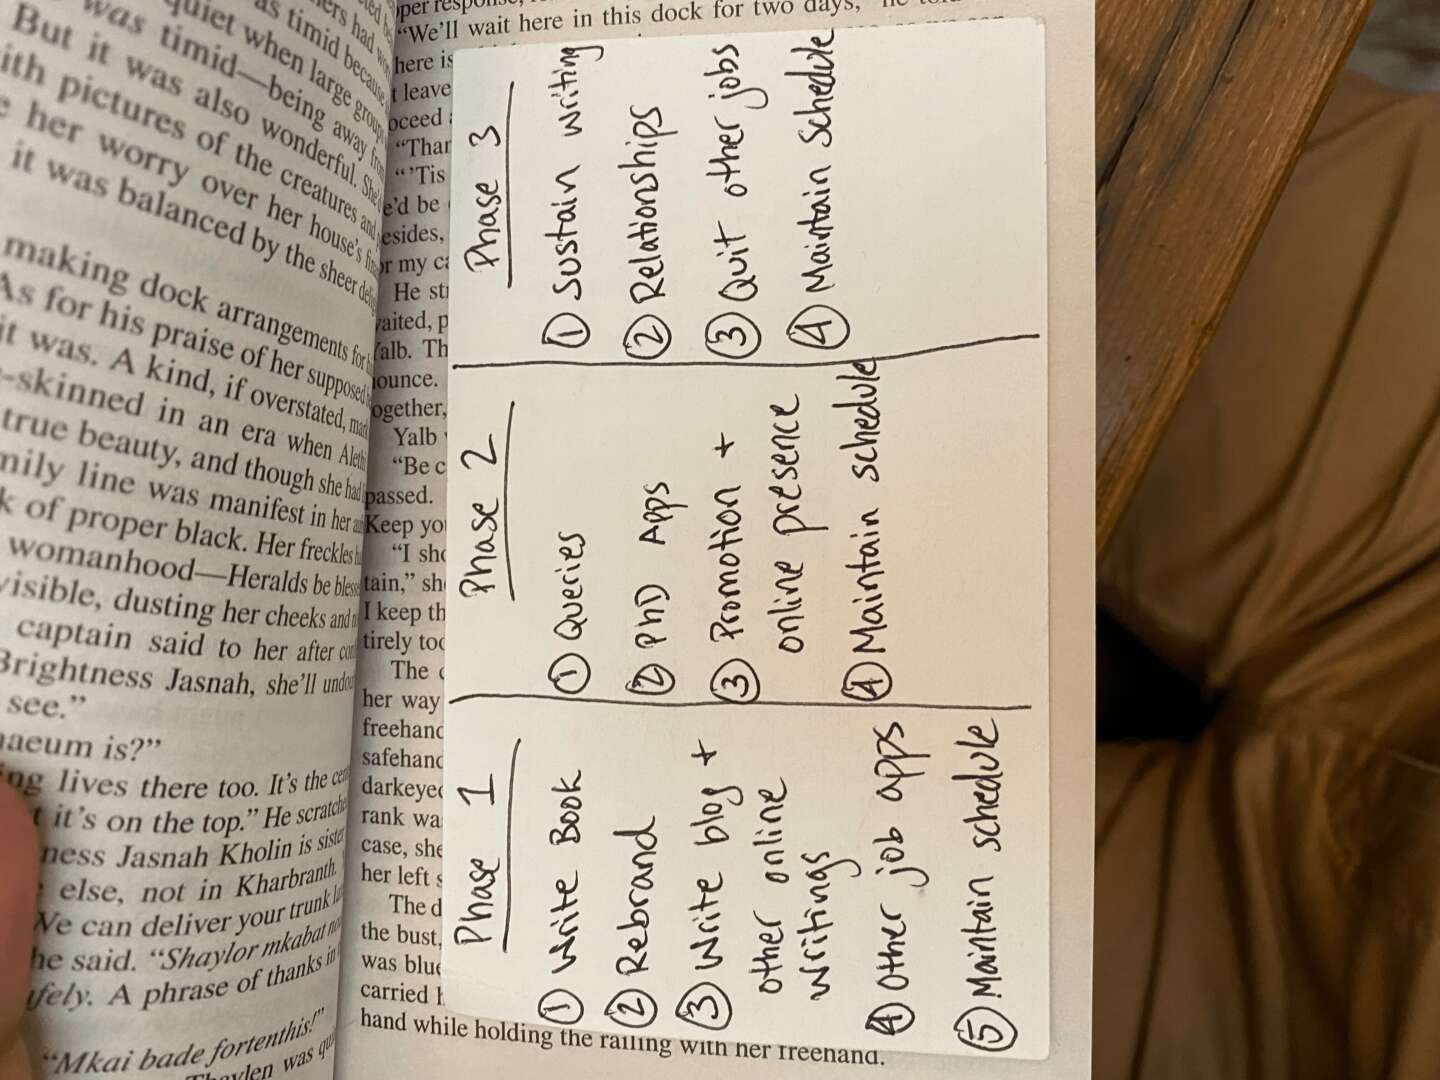 But it was also wonderful. She'd
ith pictures of the creatures and
e her worry over her house's
it was balanced by the sheer
making dock arrangements for
As for his praise of her supposed
it was. A kind, if overstated,
-skinned in an era when Alethi
true beauty, and though she had
mily line was manifest in her
k of proper black. Her freckles
womanhood—Heralds be
visible, dusting her cheeks and
captain said to her after
Brightness Jasnah, she'll
see."
naeum is?"
ng lives there too. It's the
t it's on the top." He
ness Jasnah Kholin is
else, not in Kharbranth.
We can deliver your trunk
he said. "Shaylor mkabat
fely. A phrase of thanks in
"Mkai bade fortenthis!"
Thaylen was
"We'll wait here in this dock for two days,"
here is
t leave
oceed
"'Tis
e'd be
esides,
or my
He
waited,
Yalb. Th
ounce.
ogether,
Yalb
"Be c
passed.
Keep yo
"I sho
tain," sh
I keep th
tirely too
The
her way
freehand
safehand
darkeyed
rank wa
case, she
her left
The d
the bust,
was blue
carried h
hand while holding the railing with her freehand.
Phase 1
① Write Book
② Rebrand
③ Write blog +
other online
writings
④ Other job apps
⑤ Maintain schedule
Phase 2
① Queries
② PhD Apps
③ Promotion +
online presence
④ Maintain schedule
Phase 3
① Sustain writing
② Relationships
③ Quit other jobs
④ Maintain schedule